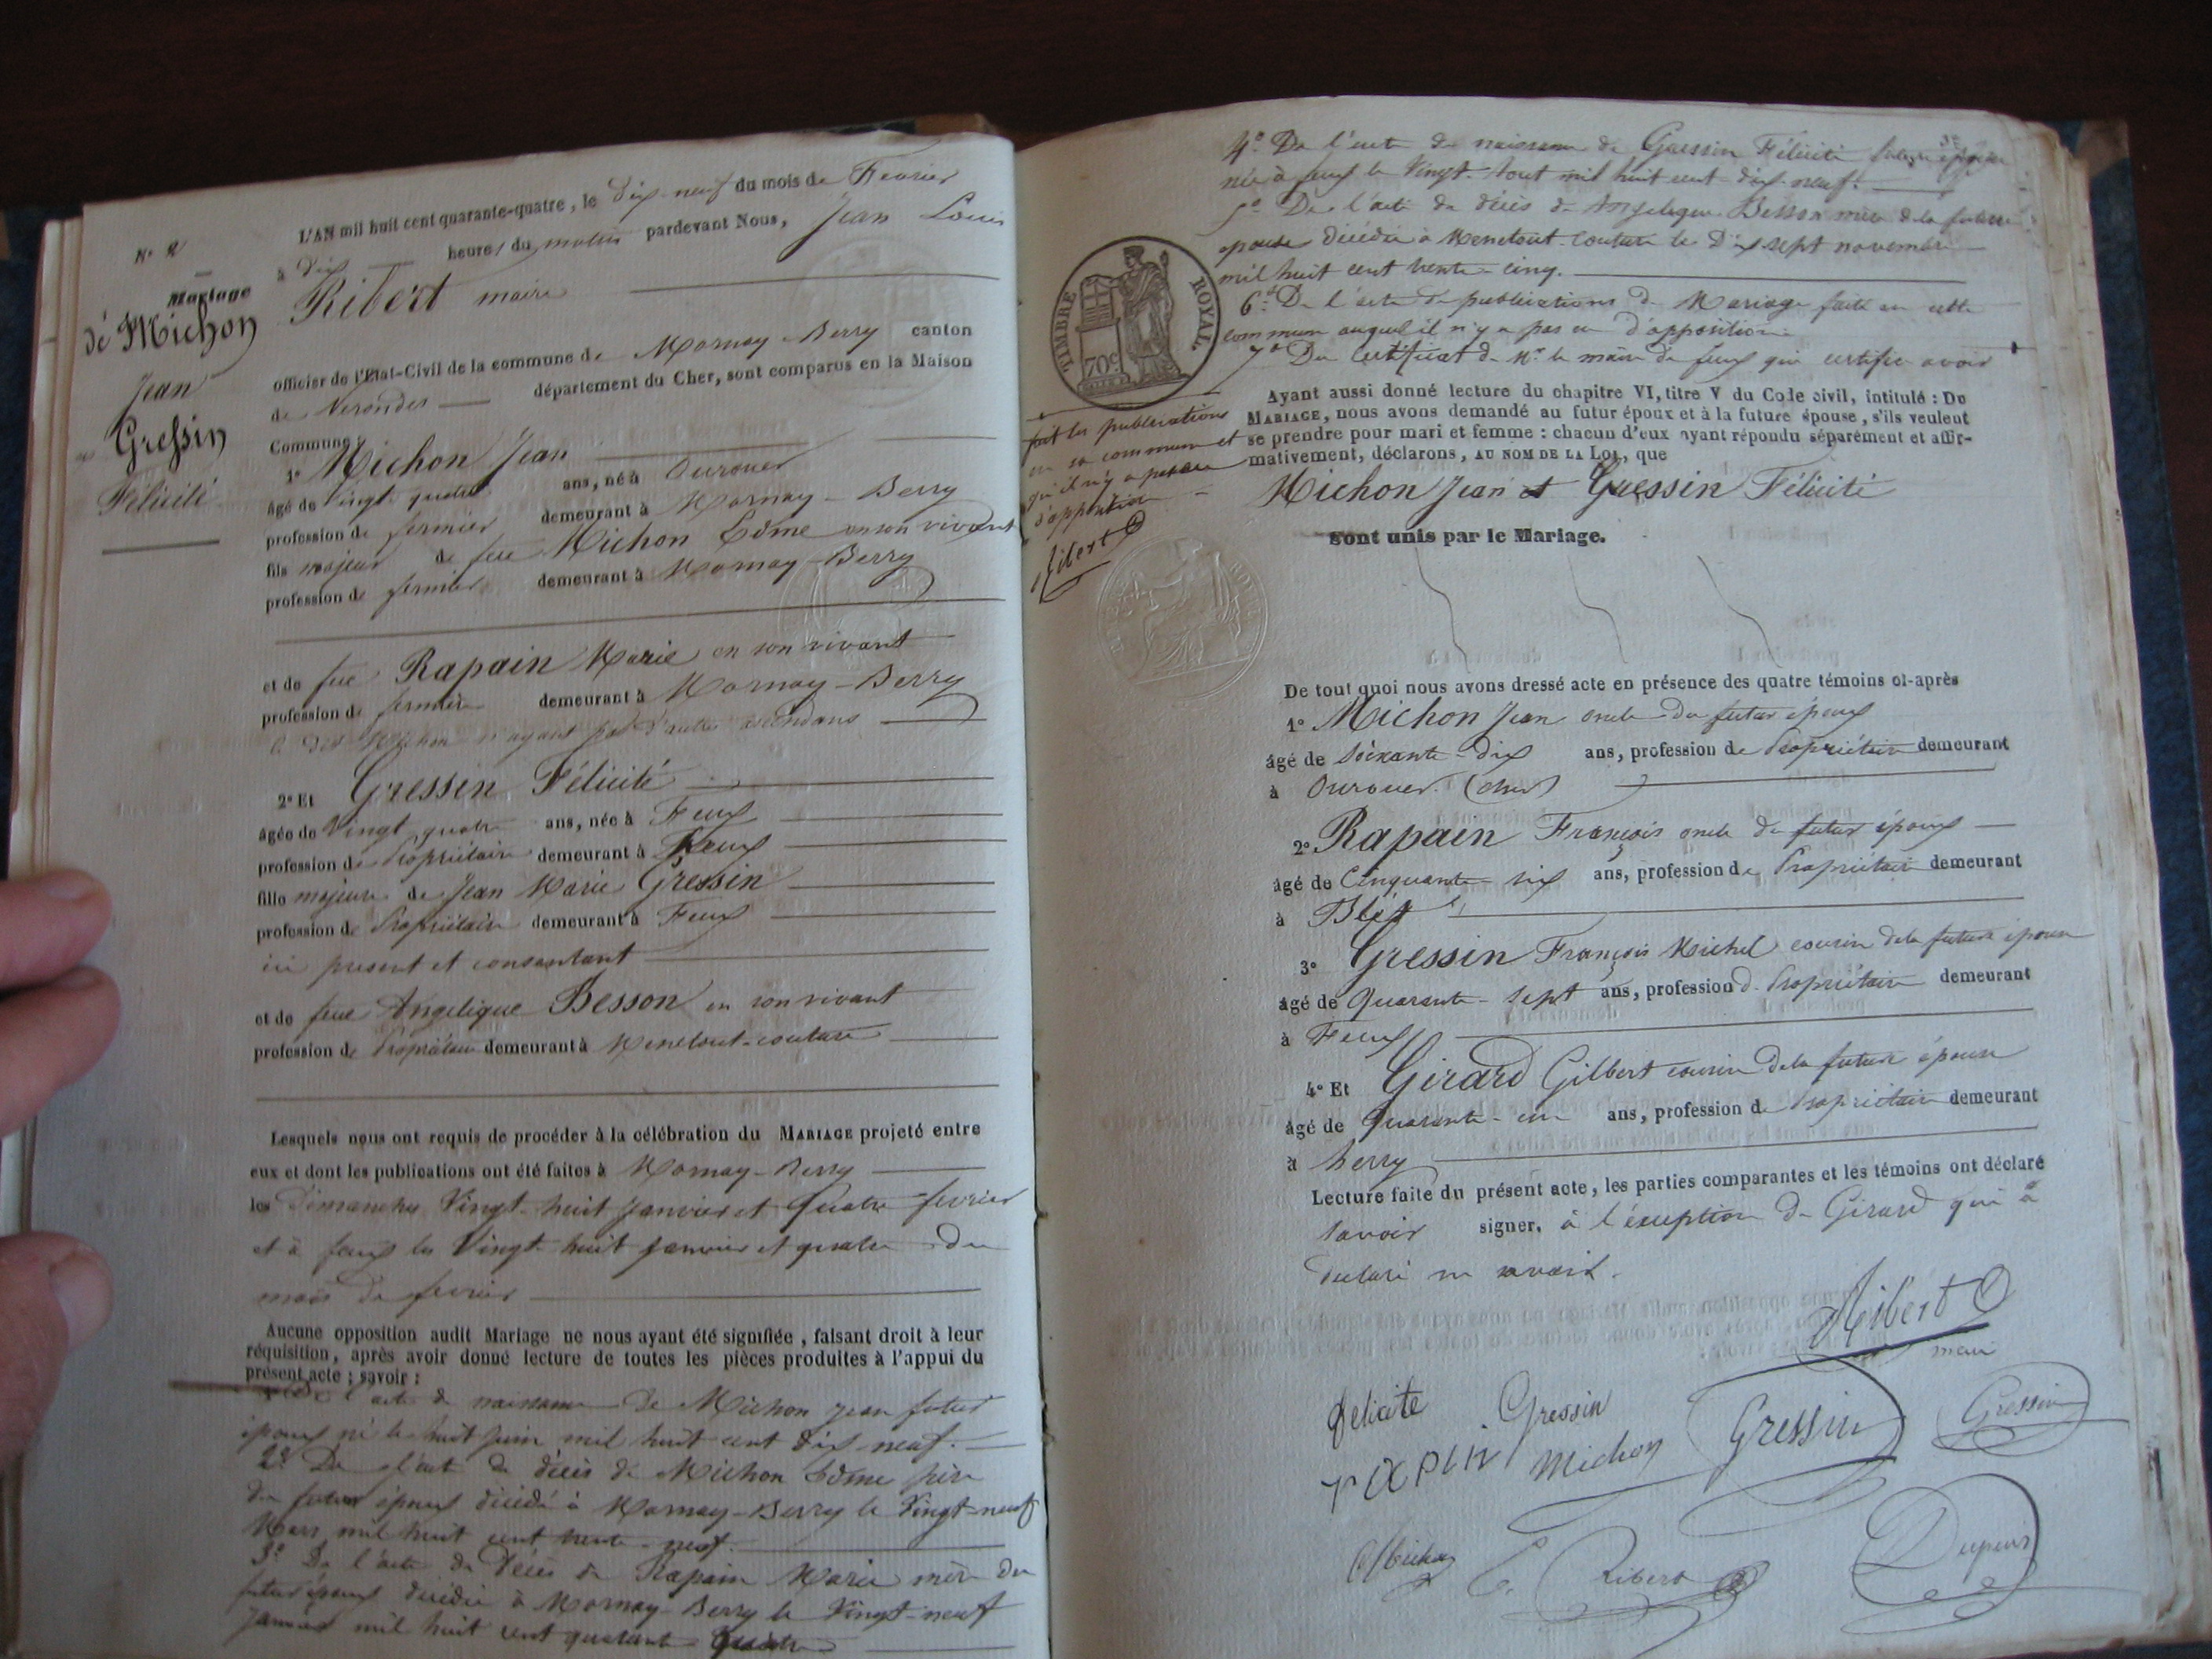 N° 2
Mariage
de Michon
Jean
et Gressin
Félicité
L'AN mil huit cent quarante-quatre, le dix-neuf du mois de Fevrier
à dix heures du matin pardevant Nous, Jean Louis
Ribert maire
officier de l'Etat-Civil de la commune de Mornay-Berry canton
de Nerondes département du Cher, sont comparus en la Maison
Commune :
1° Michon Jean
âgé de vingt quatre ans, né à Ourouer
profession de fermier demeurant à Mornay-Berry
fils majeur de feu Michon Edme en son vivant
profession de fermier demeurant à Mornay-Berry
et de feue Rapain Marie en son vivant
profession de fermière demeurant à Mornay-Berry
le dit Michon n'ayant pas d'autres ascendans
2° Et Gressin Félicité
âgée de Vingt quatre ans, née à Feux
profession de Propriétaire demeurant à Feux
fille majeure de Jean Marie Gressin
profession de Propriétaire demeurant à Feux
ici present et consentant
et de feue Angelique Besson en son vivant
profession de Propriétaire demeurant à Menetout-couture
Lesquels nous ont requis de procéder à la célébration du MARIAGE projeté entre
eux et dont les publications ont été faites à Mornay-Berry
les Dimanches Vingt-huit Janvier et Quatre fevrier
et à feux les Vingt-huit janvier et quatre du
mois de fevrier
Aucune opposition audit Mariage ne nous ayant été signifiée, faisant droit à leur
réquisition, après avoir donné lecture de toutes les pièces produites à l'appui du
présent acte ; savoir :
1° De l'acte de naissance de Michon Jean futur
époux né le huit Juin mil huit cent dix-neuf.
2° De l'acte de décès de Michon Edme père
du futur époux décédé à Mornay-Berry le Vingt-neuf
Mars mil huit cent trente-neuf.
3° De l'acte de Décès de Rapain Marie mère du
futur époux décédée à Mornay-Berry le Vingt-neuf
Janvier mil huit cent quarante quatre
4° De l'acte de naissance de Gressin Félicité future épouse
née à feux le Vingt-tout mil huit cent dix-neuf.
5° De l'acte de décès de Angelique Besson mère de la future
epouse décédée à Menetout-couture le Dix sept novembre
mil huit cent trente-cinq.
6° De l'acte de publications de Mariage faite en cette
commune auquel il n'y a pas eu d'opposition
7° Du Certificat de Mr le maire de feux qui certifie avoir
TIMBRE ROYAL.
70c
fait les publications
en sa commune et
qu'il n'y a pas eu
d'opposition
Ribert
Ayant aussi donné lecture du chapitre VI, titre V du Code civil, intitulé : DU
MARIAGE, nous avons demandé au futur époux et à la future épouse, s'ils veulent
se prendre pour mari et femme : chacun d'eux ayant répondu séparément et affir-
mativement, déclarons, AU NOM DE LA LOI, que
Michon Jean et Gressin Félicité
sont unis par le Mariage.
De tout quoi nous avons dressé acte en présence des quatre témoins ci-après
1° Michon Jean oncle du futur époux
âgé de soixante-dix ans, profession de Propriétaire demeurant
à Ourouer (cher)
2° Rapain François oncle du futur époux
âgé de Cinquante-six ans, profession de Propriétaire demeurant
à Blet
3° Gressin François Michel cousin dela future épouse
âgé de Quarante-sept ans, profession de Propriétaire demeurant
à Feux
4° Et Girard Gilbert cousin dela future épouse
âgé de Quarante-un ans, profession de Propriétaire demeurant
à Berry
Lecture faite du présent acte, les parties comparantes et les témoins ont déclaré
savoir signer, à l'exception de Girard qui a
declaré ne savoir.
Ribert
maire
felicite Gressin
rapin Michon Gressin Gressin
Michon Ribert Dupuis